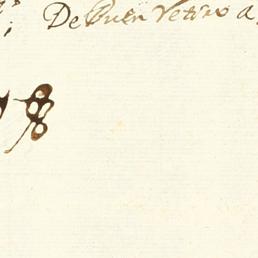 De Buen Retiro a